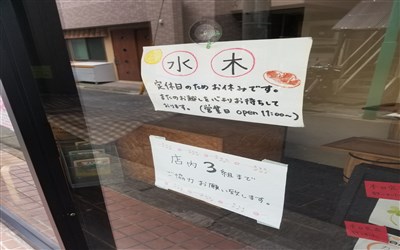 水 木
定休日のためお休みです。
またのお越しを心よりお待ちして
おります。(営業日 open 11:00〜)
店内3組まで
ご協力お願い致します。